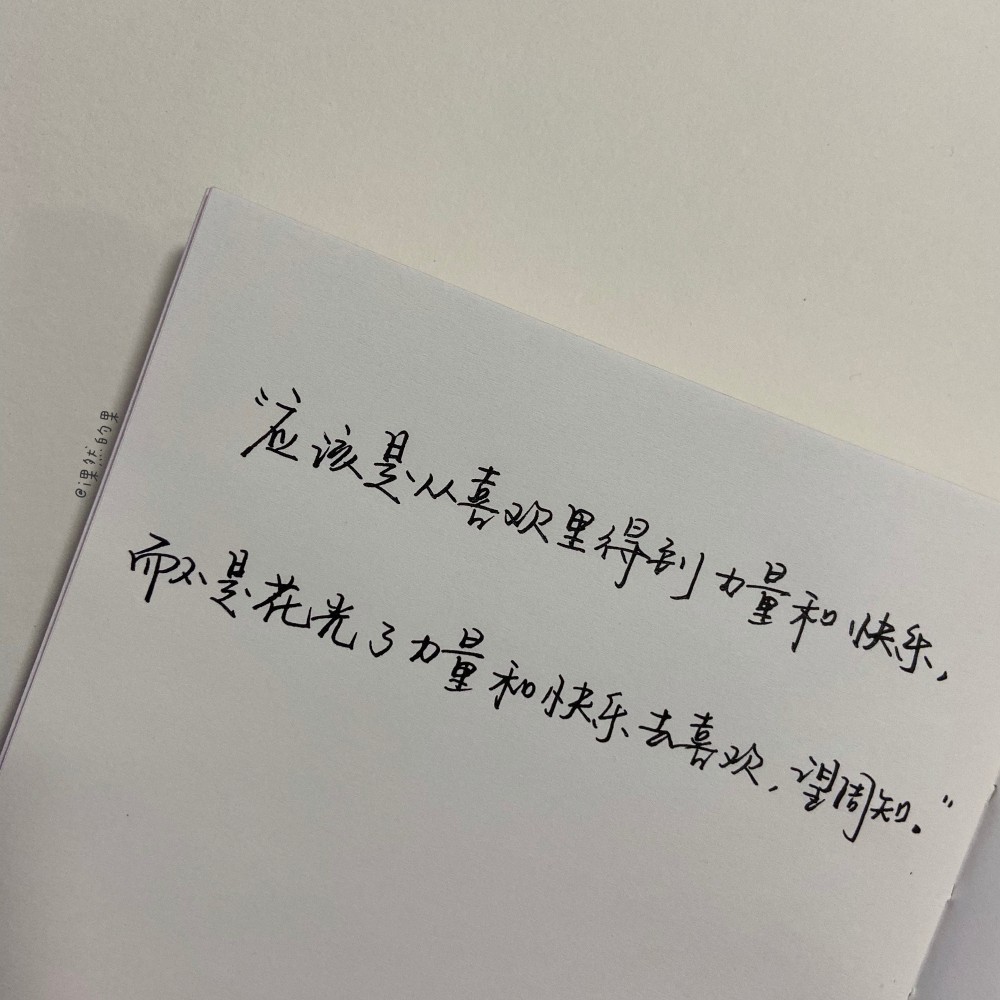 “应该是从喜欢里得到力量和快乐,
而不是花光了力量和快乐去喜欢,望周知.”
@i果然的果